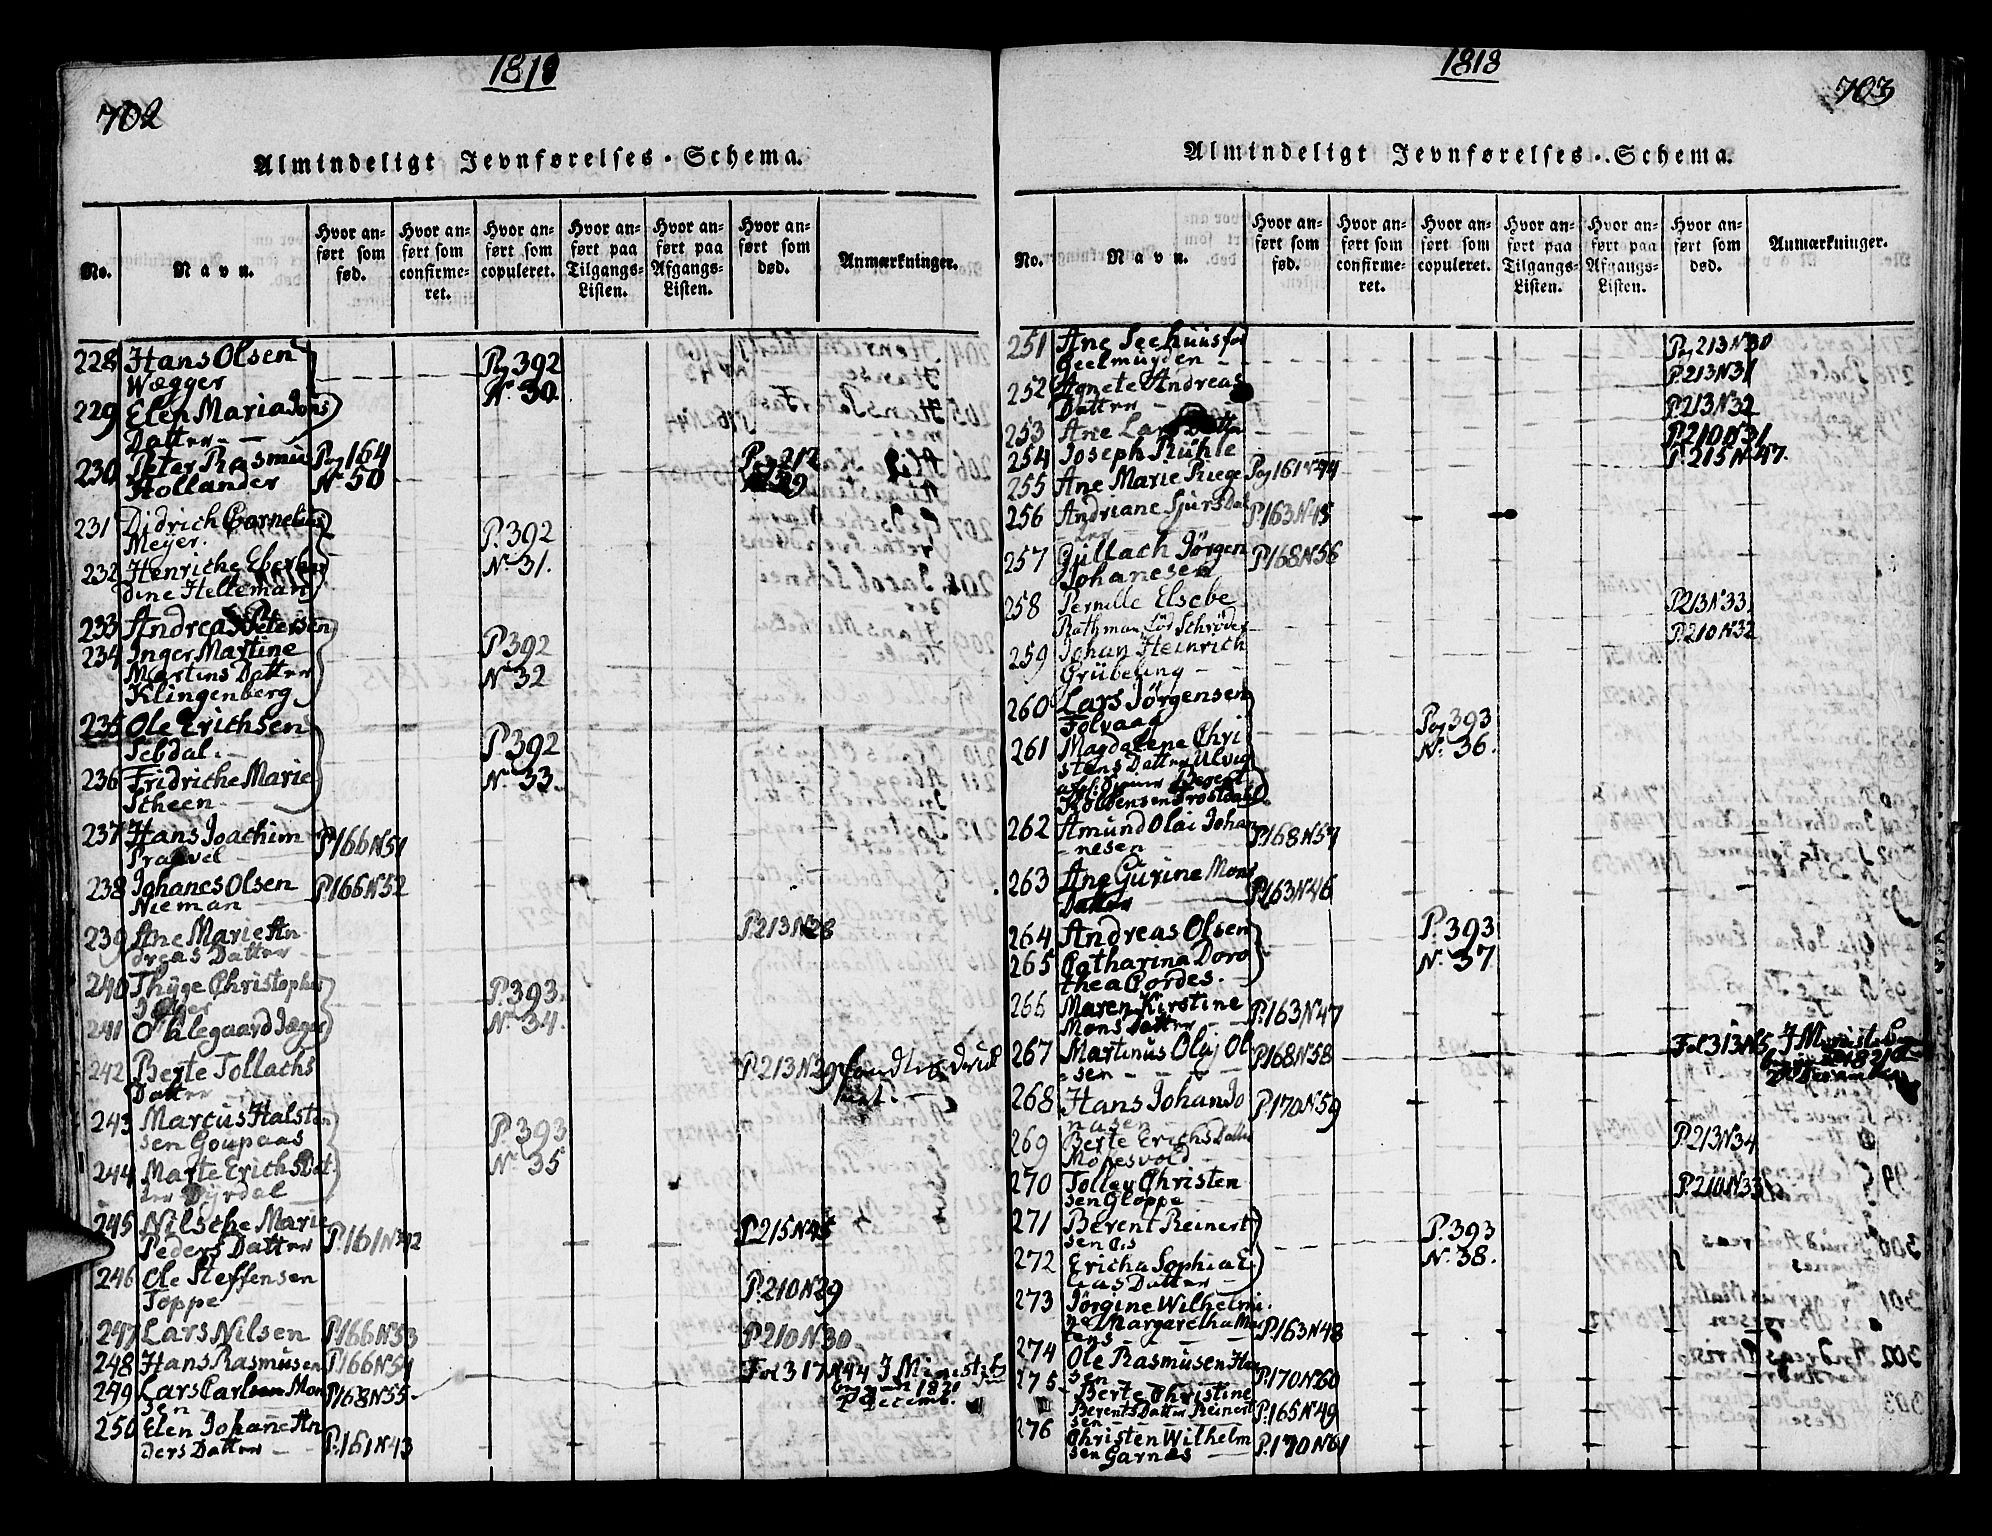 702
1818
Almindeligt Jevnførelses-Schema.
No.
Navn.
Hvor anført som fød.
Hvor anført som confirmeret.
Hvor anført som copuleret.
Hvor anført paa Tilgangs-Listen.
Hvor anført paa Afgangs-Listen.
Hvor anført som død.
Anmærkninger.
228 Hans Olsen
Wægger
Pag 392
N. 30.
229 Elen Maria Jons
Datter
230 Peter Rasmus
Hollander
Pag 164
N. 50
Pag 212
231 Didrich Cornelius
Meyer.
P. 392
N. 31.
232 Henriche Eberhar
dine Helteman
233 Andreas Petersen
234 Inger Martine
Martins Datter
Klingenberg
P. 392
N. 32
235 Ole Erichsen
Sebdal.
P. 392
N. 33.
236 Fridriche Marie
Scheen
237 Hans Joachim
P. 166 N 51
238 Johanes Olsen
Nieman
P. 166 N 52
239 Ane Marie An
dreas Datter
P. 213 N 28
240 Thyge Christopher
P. 393.
N. 34.
241 Jæger
242 Berte Tollachs
Datter
P. 213 N 29
243 Marcus Halsten
sen Goupaas
P. 393
N. 35
244 Marte Erichs Dat
ter
245 Nilsche Marie
Peders Datter
P. 161 N 42
P. 215 N 45
246 Ole Steffensen
Toppe
P. 210 N 29
247 Lars Nilsen
P. 166 N 53
P. 210 N 30
248 Hans Rasmusen
P. 166 N 54
Fol 317 N 44
249 Lars Carlsen Mon
sen
P. 168 N 55
Decemb.
250 Elen Johane An
ders Datter
P. 161 N 43
1818
703
Almindeligt Jevnførelses-Schema.
No.
Navn.
Hvor anført som fød.
Hvor anført som confirmeret.
Hvor anført som copuleret.
Hvor anført paa Tilgangs-Listen.
Hvor anført paa Afgangs-Listen.
Hvor anført som død.
Anmærkninger.
251 Ane Seehuusfød
Geelmuyden
Pag 213 N 30
252 Agnete Andreas
Datter
P. 213 N 31
253 Ane Lars Datter
P. 213 N 32
254 Joseph Rühle
P. 210 N 31
255 Ane Marie Riege
Pag 161 N 44
P. 215 N 47.
256 Andriane Sjurs Dat
ter
P. 163 N 45
257 Gjillach Jørgen
Johanesen
P. 168 N 56
258 Pernille Elsebe
Rathman fød Schrøder
P. 213 N 33
259 Johan Heinrich
Grübeling
P. 210 N 32
260 Lars Jørgensen
Folvaag
Pag 393
N. 36.
261 Magdalene Chri
stens Datter Ulvig
262 Amund Olai Johan
nesen
P. 168 N 57
263 Ane Gurine Mons
Datter
P. 163 N 46
264 Andreas Olsen
P. 393
N. 37
265 Catharina Doro
thea Cordes.
266 Maren Kirstine
Mons Datter
P. 163 N 47
267 Martinus Olai Ol
sen
P. 168 N 58
Fol 313 N 5
268 Hans Johan Jo
nasen
P. 170 N 59
269 Berte Erichs Datter
P. 213 N 34
270 Tolley Christen
sen Gloppe
P. 210 N 33
271 Berent Reinert
sen
P. 393
N. 38.
272 Ericha Sophia E
lias Datter
273 Jørgine Wilhelmi
ne Margaretha Mar
tens
P. 163 N 48
274 Ole Rasmusen Han
sen
P. 170 N 60
275 Berte Christine
Berents Datter Reinert
sen
P. 165 N 49
276 Christen Wilhelm
sen Garnæs
P. 170 N 61